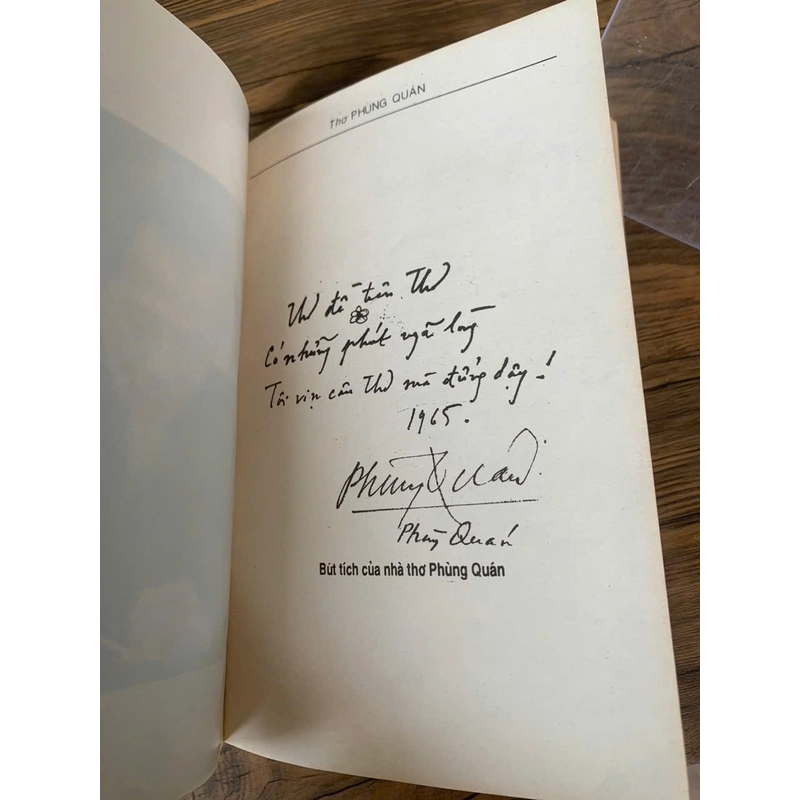 Thơ PHÙNG QUÁN
Thơ đề trên Thơ
Có những phút ngã lòng
Tôi vịn câu Thơ mà đứng dậy!
1965.
Phùng Quán
Phùng Quán
Bút tích của nhà thơ Phùng Quán